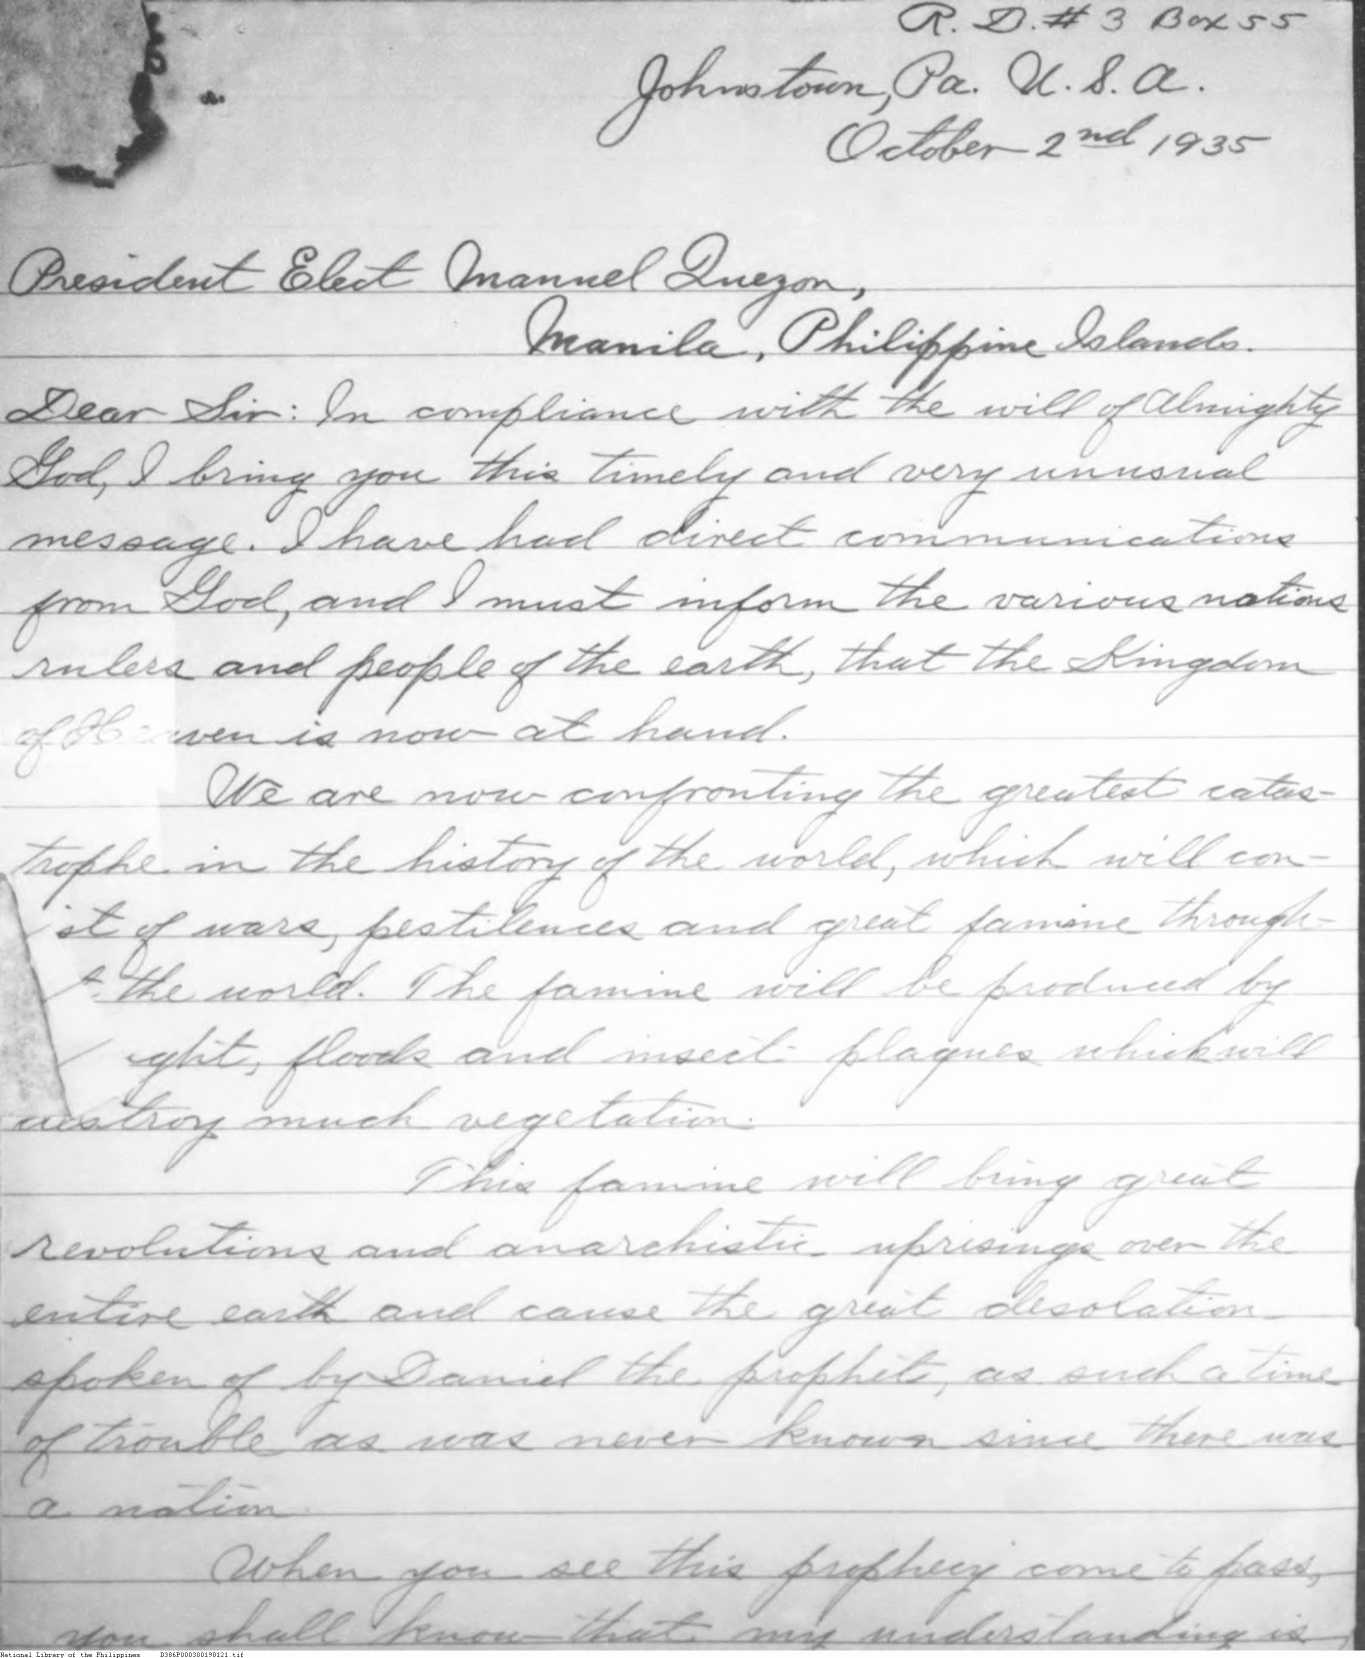 R. D. # 3 Box 55
Johnstown, Pa. U. S. A.
October 2nd 1935
President Elect Manuel Quezon,
Manila, Philippine Islands.
Dear Sir: In compliance with the will of Almighty
God, I bring you this timely and very unusual
message. I have had direct communications
from God, and I must inform the various nations
rulers and people of the earth, that the Kingdom
of Heaven is now at hand.
We are now confronting the greatest catas-
trophe in the history of the world, which will con-
ist of wars, pestilences and great famine through-
the world. The famine will be produced by
ght, floods and insect plagues which will
destroy much vegetation.
This famine will bring great
revolutions and anarchistic uprisings over the
entire earth and cause the great desolation
spoken of by Daniel the prophet, as such a time
of trouble as was never known since there was
a nation
When you see this prophecy come to pass,
you shall know that my understanding is,
National Library of the Philippines D386P000300190121.tif